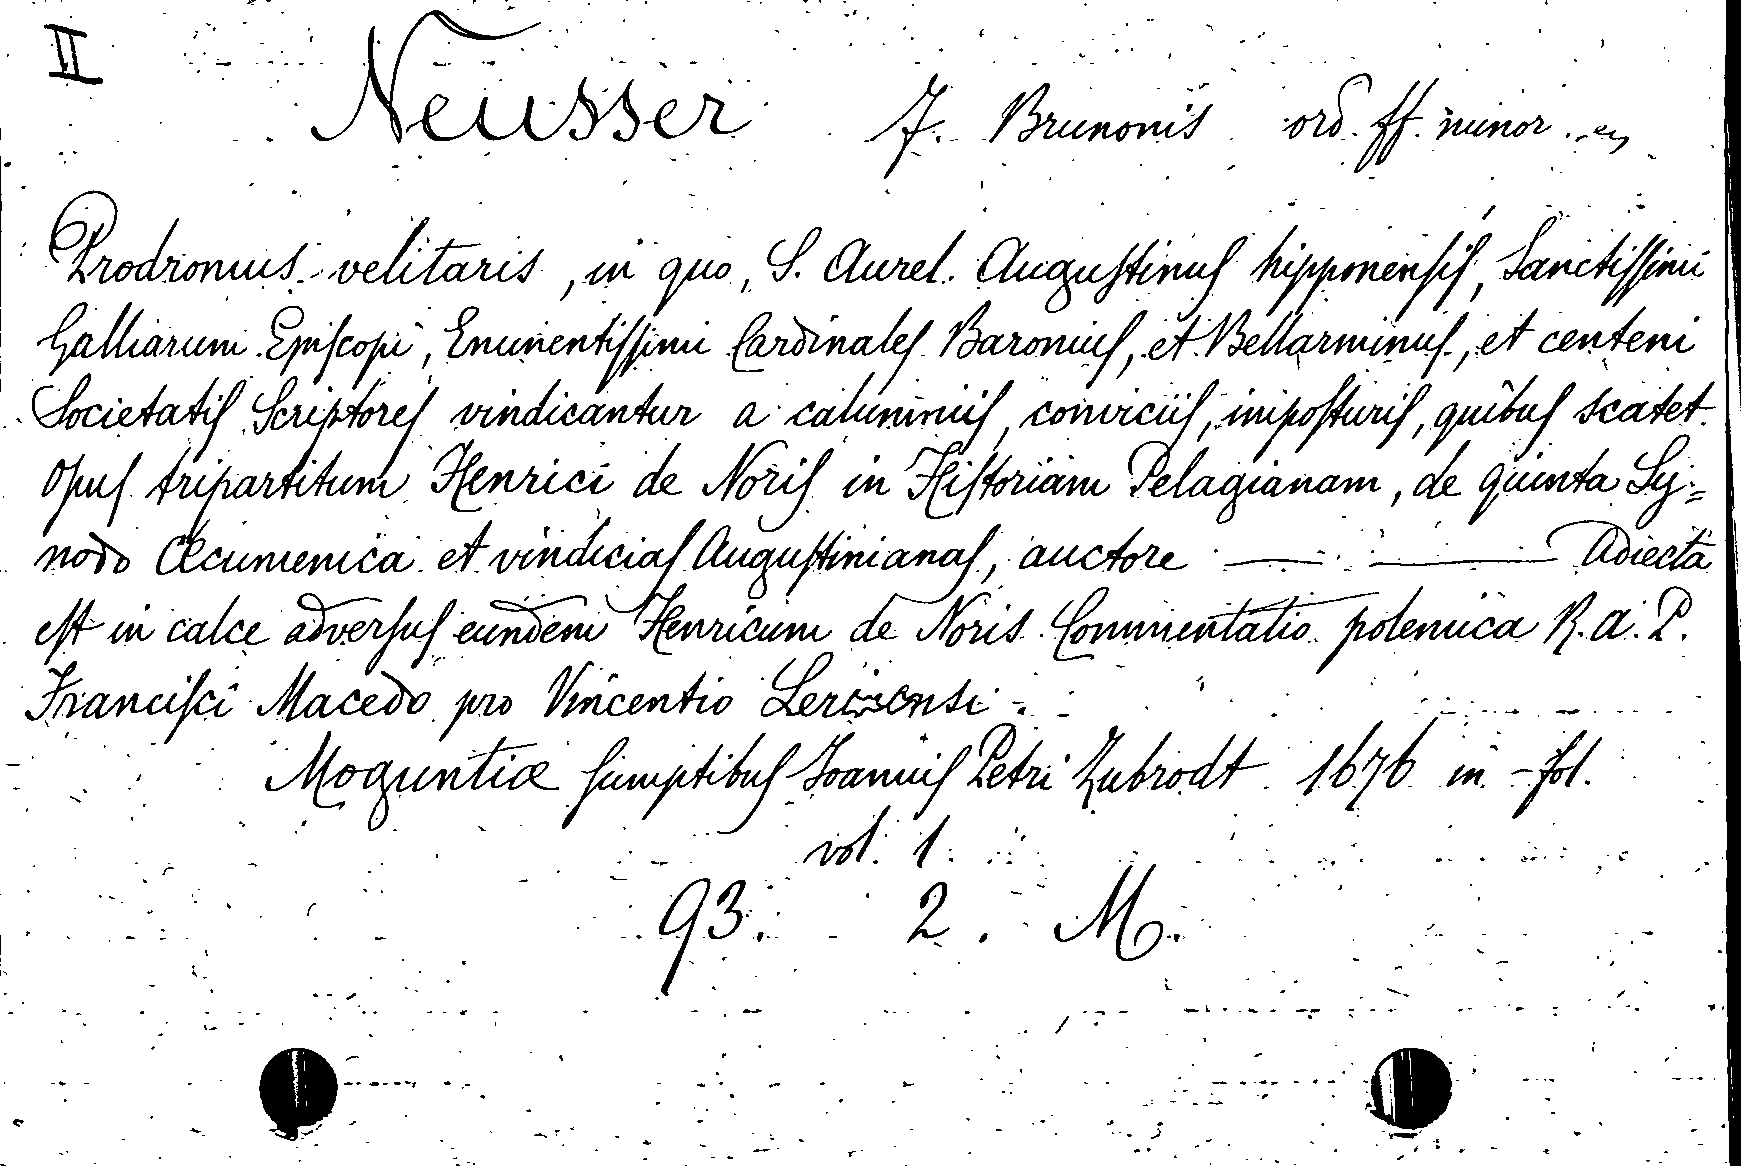 II
Neusser F. Brunonis ord. ff. minor.
Prodromus velitaris, in quo, S. Aurel. Augustinus hipponensis, Sanctissimi
Galliarum Episcopi, Eminentissimi Cardinales Baronius, et Bellarminus, et centeni
Societatis Scriptores vindicantur a calumniis, conviciis, imposturis, quibus scatet
opus tripartitum Henrici de Noris in Historiam Pelagianam, de quinta Sy=
nodo Œcumenica et vindicias Augustinianas, auctore — — Adiecta
est in calce adversus eundem Henricum de Noris Commentatio polemica R. a. P.
Francisci Macedo pro Vincentio Lerinensi.
Moguntiæ sumptibus Joannis Petri Zubrodt 1676 in-fol.
vol. 1.
93. 2. M.